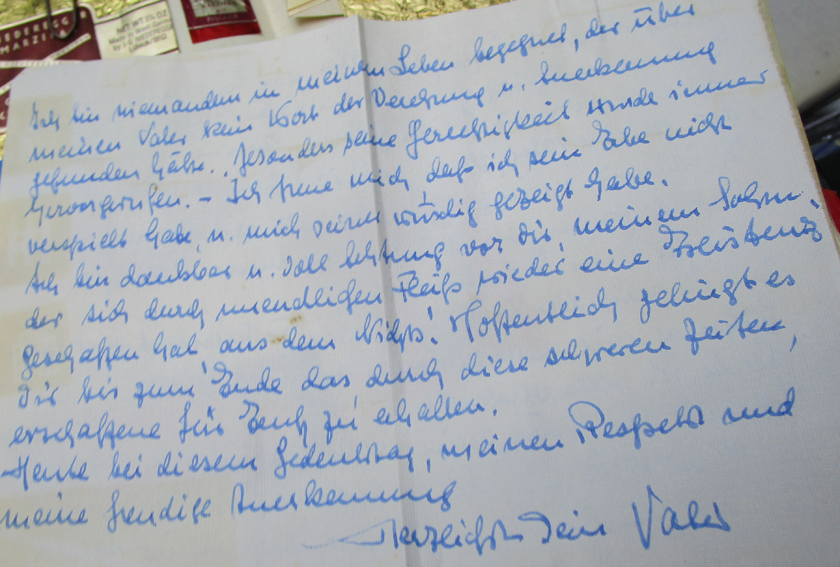 NIEDEREGG
MARZI
NET WT
Ich bin niemanden in meinem Leben begegnet, der über
meinen Vater kein Wort der Verehrung u. Anerkennung
gefunden hätte. Besonders seine Gerechtigkeit wurde immer
hervorgerufen. – Ich freue mich, daß ich sein Erbe nicht
verspielt habe, u. mich seiner würdig gezeigt habe.
Ich bin dankbar u. voll Achtung vor Dir, meinem Sohn,
der sich durch unendlichen Fleiß wieder eine Existenz
geschaffen hat, aus dem Nichts! Hoffentlich gelingt es
Dir bis zum Ende das durch diese schweren Zeiten,
erschaffene für Euch zu erhalten.
Heute bei diesem Gedenktag, meinen Respekt und
meine freudige Anerkennung
Herzlichst Dein Vater